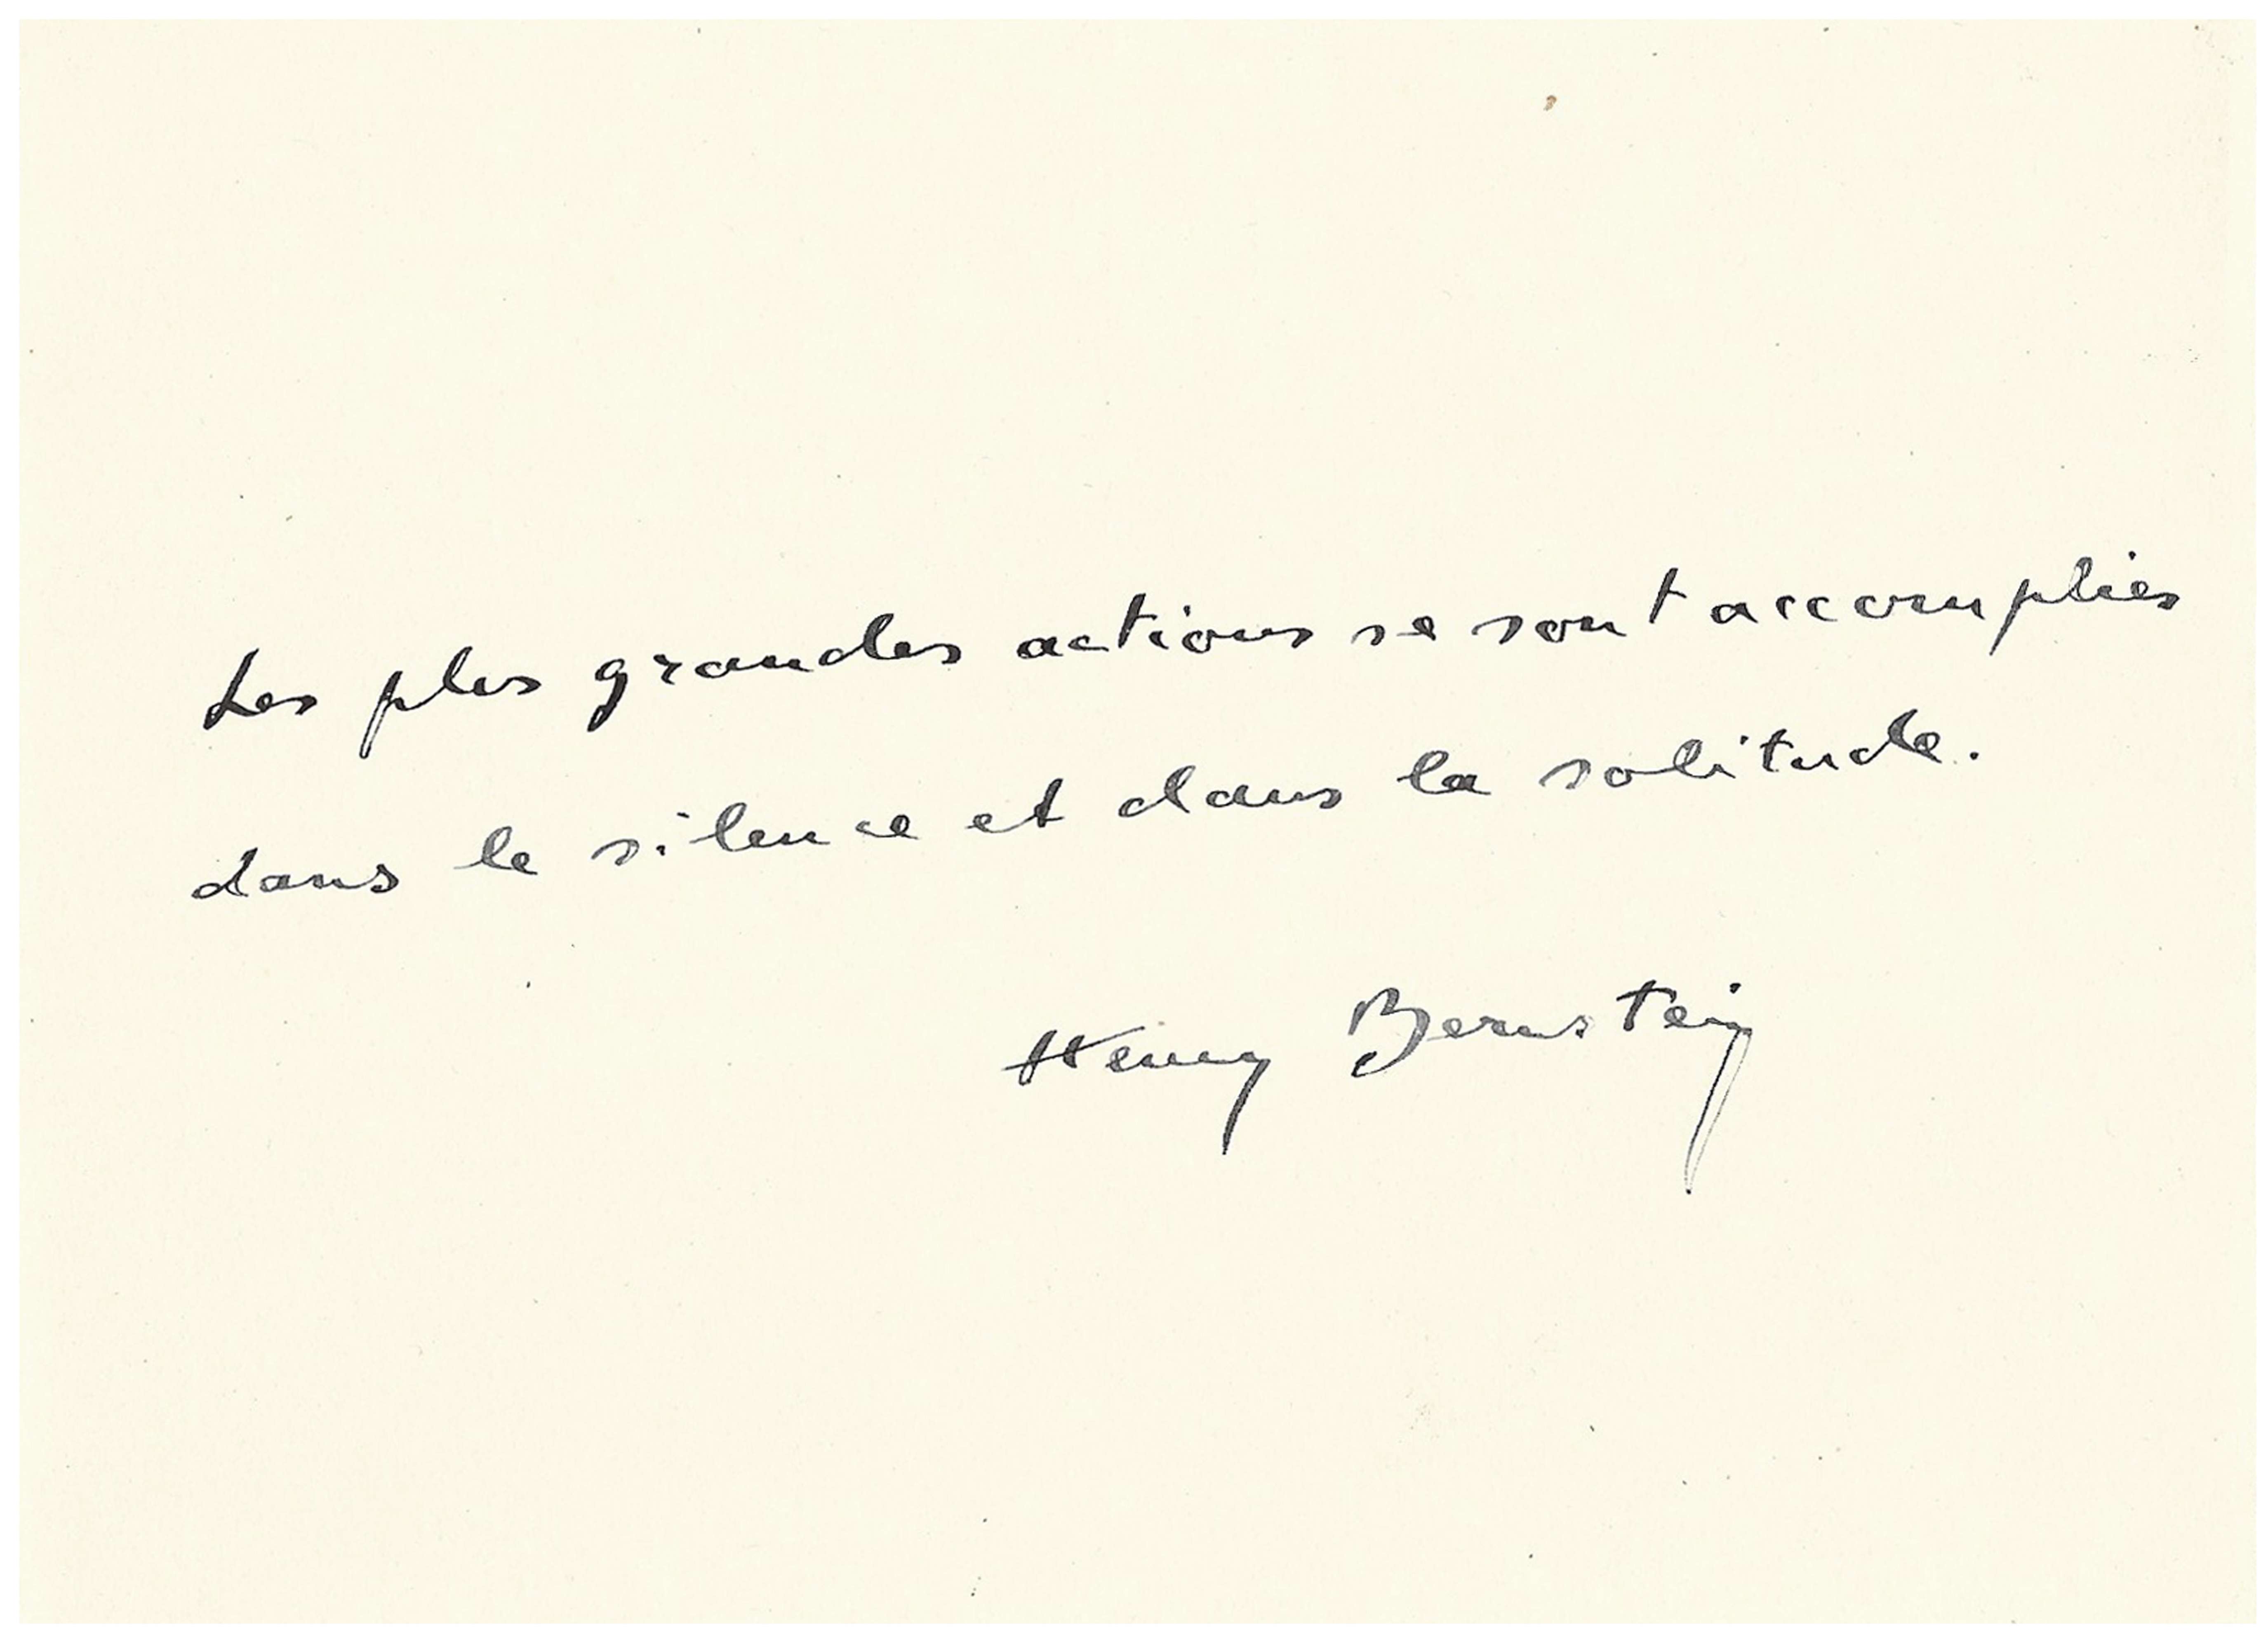 Les plus grandes actions se sont accomplies
dans le silence et dans la solitude.
Henry Bernstein